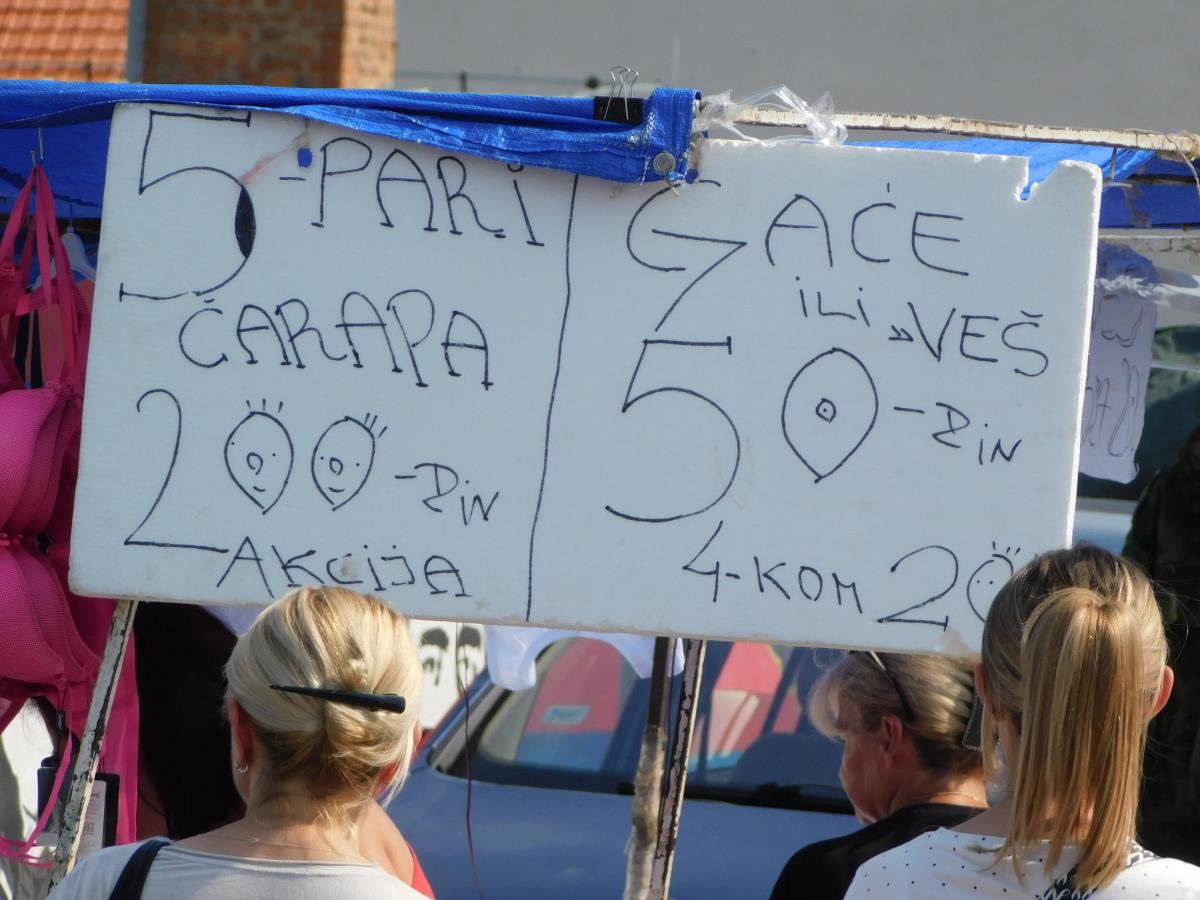 5-PARI
ČARAPA
200-DIN
AKCIJA
GAĆE
ILI "VEŠ
50-DIN
4-KOM 20